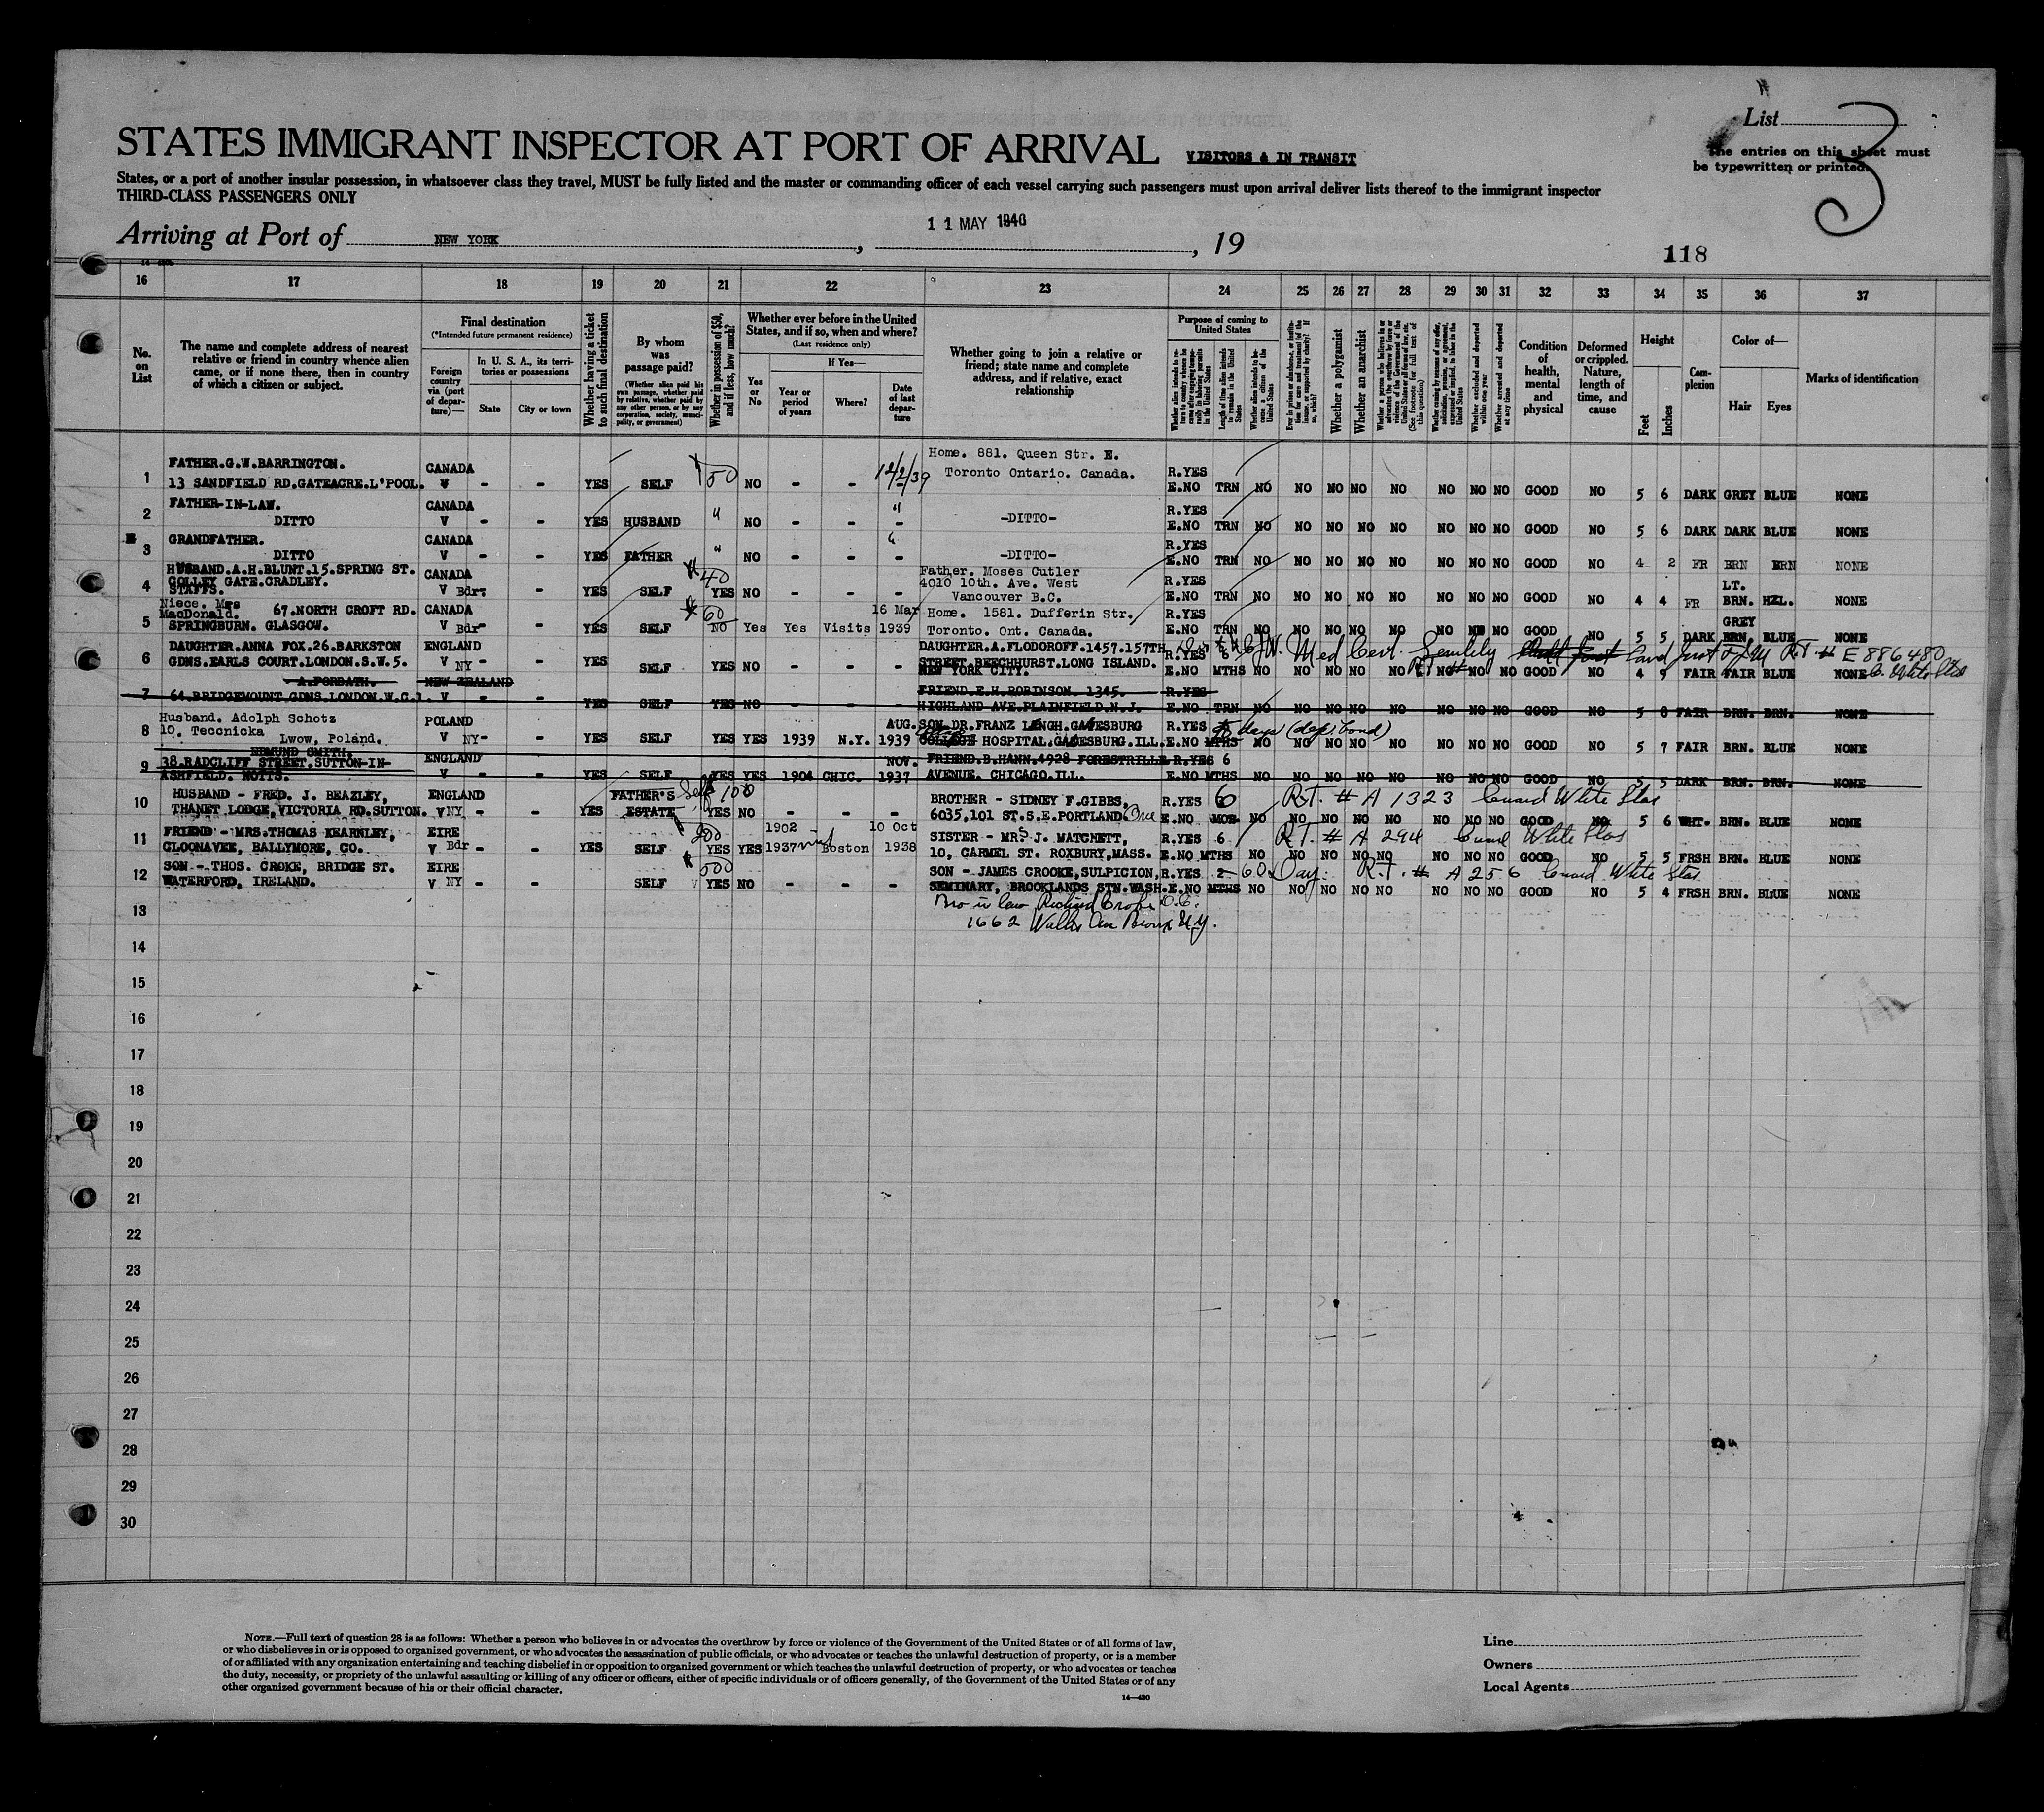 List 3
STATES IMMIGRANT INSPECTOR AT PORT OF ARRIVAL VISITORS & IN TRANSIT
The entries on this sheet must
be typewritten or printed.
States, or a port of another insular possession, in whatsoever class they travel, MUST be fully listed and the master or commanding officer of each vessel carrying such passengers must upon arrival deliver lists thereof to the immigrant inspector
THIRD-CLASS PASSENGERS ONLY
Arriving at Port of NEW YORK, 11 MAY 1940, 19
118
16 17 18 19 20 21 22 23 24 25 26 27 28 29 30 31 32 33 34 35 36 37
No. on List
The name and complete address of nearest relative or friend in country whence alien came, or if none there, then in country of which a citizen or subject.
Final destination
(*Intended future permanent residence)
Foreign country via (port of departure)—
In U. S. A., its territories or possessions
State
City or town
Whether having a ticket to such final destination
By whom was passage paid?
(Whether alien paid his own passage, whether paid by relative, whether paid by any other person, or by any corporation, society, municipality, or government)
Whether in possession of $50, and if less, how much?
Whether ever before in the United States, and if so, when and where?
(Last residence only)
Yes or No
If Yes—
Year or period of years
Where?
Date of last departure
Whether going to join a relative or friend; state name and complete address, and if relative, exact relationship
Purpose of coming to United States
Whether alien intends to return to country whence he came after engaging temporarily in laboring pursuits in the United States
Length of time alien intends to remain in the United States
Whether alien intends to become a citizen of the United States
Whether a polygamist
Whether an anarchist
Whether excluded and deported within one year
Whether arrested and deported at any time
Condition of health, mental and physical
Deformed or crippled. Nature, length of time, and cause
Height
Feet
Inches
Complexion
Color of—
Hair
Eyes
Marks of identification
1 FATHER.G.W.BARRINGTON. 13 SANDFIELD RD.GATEACRE.L'POOL. CANADA V - - YES SELF 50 NO - - 12/2/39 Home. 881. Queen Str. E. Toronto Ontario. Canada. R.YES E.NO TRN NO NO NO NO NO NO NO NO GOOD NO 5 6 DARK GREY BLUE NONE
2 FATHER-IN-LAW. DITTO CANADA V - - YES HUSBAND " NO - - " - -DITTO- R.YES E.NO TRN NO NO NO NO NO NO NO NO GOOD NO 5 6 DARK DARK BLUE NONE
3 GRANDFATHER. DITTO CANADA V - - YES FATHER " NO - - - -DITTO- R.YES E.NO TRN NO NO NO NO NO NO NO NO GOOD NO 4 2 FR BRN BRN NONE
4 HUSBAND.A.H.BLUNT.15.SPRING ST. COLLEY GATE.CRADLEY. STAFFS. CANADA V Bdr. - YES SELF 40 YES NO - - - Father. Moses Cutler 4010 10th. Ave. West Vancouver B.C. R.YES E.NO TRN NO NO NO NO NO NO NO NO GOOD NO 4 4 FR LT. BRN. HZL. NONE
5 Niece. Mrs MacDonald. 67.NORTH CROFT RD. SPRINGBURN. GLASGOW. CANADA V Bdr - - YES SELF 60 NO Yes Yes Visits 16 Mar 1939 Home. 1581. Dufferin Str. Toronto. Ont. Canada. R.YES E.NO TRN NO NO NO NO NO NO NO NO GOOD NO 5 5 DARK GREY BRN. BLUE NONE
6 DAUGHTER.ANNA FOX.26.BARKSTON GDNS.EARLS COURT.LONDON.S.W.5. ENGLAND V NY - - YES SELF YES NO - - - DAUGHTER.A.FLODOROFF.1457.157TH STREET.BEECHHURST.LONG ISLAND. NEW YORK CITY. R.YES 6 E.NO MTHS NO NO NO NO NO NO NO NO GOOD NO 4 9 FAIR FAIR BLUE NONE Med Cert. Senility R.T # E 886480 C. White Star
7 A.FORBATH. 64.BRIDGEMOUNT.GDNS.LONDON.W.C.1. NEW ZEALAND V - - YES SELF YES NO - - - FRIEND.E.H.ROBINSON. 1345. HIGHLAND AVE.PLAINFIELD.N.J. R.YES E.NO TRN NO NO NO NO NO NO NO NO GOOD NO 5 8 FAIR BRN. BRN. NONE
8 Husband. Adolph Schotz 10. Teconicka Lwow, Poland. POLAND V NY - - YES SELF YES YES 1939 N.Y. AUG. 1939 SON.DR.FRANZ LENGH.GALESBURG COLLEGE HOSPITAL.GALESBURG.ILL. R.YES days (dept bond) E.NO MTHS NO NO NO NO NO NO NO NO GOOD NO 5 7 FAIR BRN. BLUE NONE
9 EDMUND SMITH. 38.RADCLIFF STREET.SUTTON-IN-ASHFIELD. NOTTS. ENGLAND V - - YES SELF YES YES 1904 CHIC. NOV. 1937 FRIEND.B.HANN.4928 FORESTRILLE AVENUE. CHICAGO.ILL. R.YES 6 E.NO MTHS NO NO NO NO NO NO NO NO GOOD NO 5 5 DARK BRN. BRN. NONE
10 HUSBAND - FRED. J. BEAZLEY, THANET LODGE,VICTORIA RD.SUTTON. ENGLAND V NY - - YES FATHER'S ESTATE Self 100 YES NO - - - BROTHER - SIDNEY F.GIBBS, 6035,101 ST.S.E.PORTLAND Ore R.YES 6 E.NO MOS. NO NO NO NO NO NO NO NO GOOD NO 5 6 WHT. BRN. BLUE NONE R.T. # A 1323 Cunard White Star
11 FRIEND - MRS.THOMAS KEARNLEY, CLOONAVEE, BALLYMORE, CO. EIRE V Bdr - - YES SELF 200 YES YES 1902 - 1937 Boston 10 Oct 1938 SISTER - MRS. J. MATCHETT, 10, CARMEL ST. ROXBURY,MASS. R.YES 6 E.NO MTHS NO NO NO NO NO NO NO NO GOOD NO 5 5 FRSH BRN. BLUE NONE R.T. # A 294 Cunard White Star
12 SON - THOS. CROKE, BRIDGE ST. WATERFORD, IRELAND. EIRE V NY - - SELF 500 YES NO - - - SON - JAMES CROOKE,SULPICION, SEMINARY, BROOKLANDS STN.WASH. R.YES 2 60 Day. E.NO MTHS NO NO NO NO NO NO NO NO GOOD NO 5 4 FRSH BRN. BLUE NONE R.T. # A 256 Cunard White Star
13 Bro in law Richard Croke D.C.
1662 Wallis Ave Bronx N.Y.
14
15
16
17
18
19
20
21
22
23
24
25
26
27
28
29
30
NOTE.—Full text of question 28 is as follows: Whether a person who believes in or advocates the overthrow by force or violence of the Government of the United States or of all forms of law,
or who disbelieves in or is opposed to organized government, or who advocates the assassination of public officials, or who advocates or teaches the unlawful destruction of property, or is a member
of or affiliated with any organization entertaining and teaching disbelief in or opposition to organized government or which teaches the unlawful destruction of property, or who advocates or teaches
the duty, necessity, or propriety of the unlawful assaulting or killing of any officer or officers, either of specific individuals or of officers generally, of the Government of the United States or of any
other organized government because of his or their official character.
14—430
Line
Owners
Local Agents